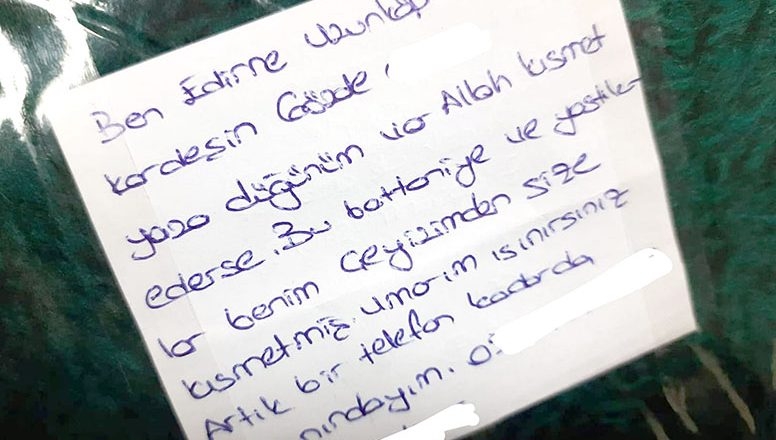 Ben Edirne Uzunköp
kardeşin Gözde,
yaza düğünüm var Allah kısmet
ederse. Bu battaniye ve yastık
lar benim çeyizimden size
kısmetmiş umarım ısınırsınız
Artık bir telefon kadarda
nındayım. 0